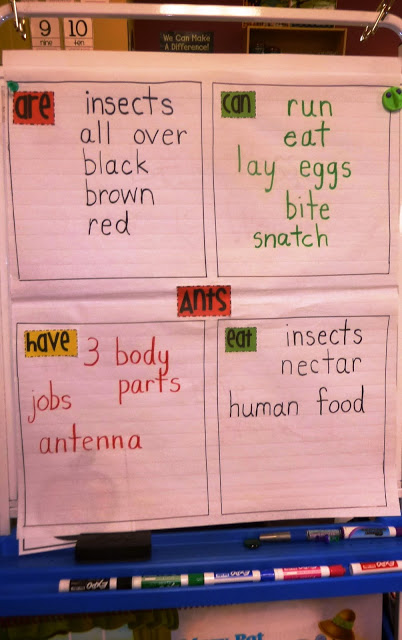 9 10
nine ten
We Can Make
A Difference!
are insects
all over
black
brown
red
can run
eat
lay eggs
bite
snatch
ANTS
have 3 body
parts
jobs
antenna
eat insects
nectar
human food
EXPO EXPO EXPO EXPO